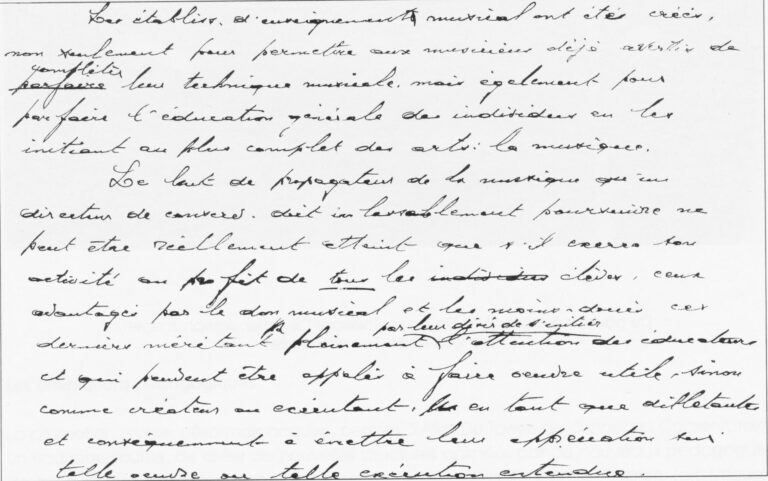 Les établiss. d'enseignements musical ont étés créés,
non seulement pour permettre aux musiciens déjà avertis de
compléter
parfaire leur technique musicale, mais également pour
parfaire l'éducation générale des individus en les
initiant au plus complet des arts: la musique.
Le but de propagateur de la musique qu'un
directeur de conserv. doit inlassablement poursuivre ne
peut être réellement atteint que s'il exerce son
activité au profit de tous les individus élèves, ceux
avantagés par le don musical et les moins-doués ces
par leur désir de s'initier
derniers méritant pleinement l'attention des éducateurs
et qui peuvent être appelés à faire oeuvre utile, sinon
comme créateur ou exécutant, en tant que dilletante
et conséquemment à émettre leur appréciation sur
telle oeuvre ou telle exécution entendue.